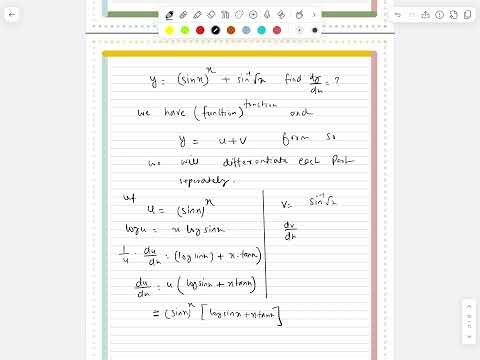 y = (sinx)^x + sin⁻¹√x find dy/dx = ?
we have (function)^function and
y = u+v form so
we will differentiate each part
seperately.
let
u = (sinx)^x
logu = x logsinx
1/u · du/dx = (logsinx) + x·tanx)
du/dx = u (logsinx + xtanx)
= (sinx)^x [logsinx + xtanx]
v = sin⁻¹√x
dv/dx